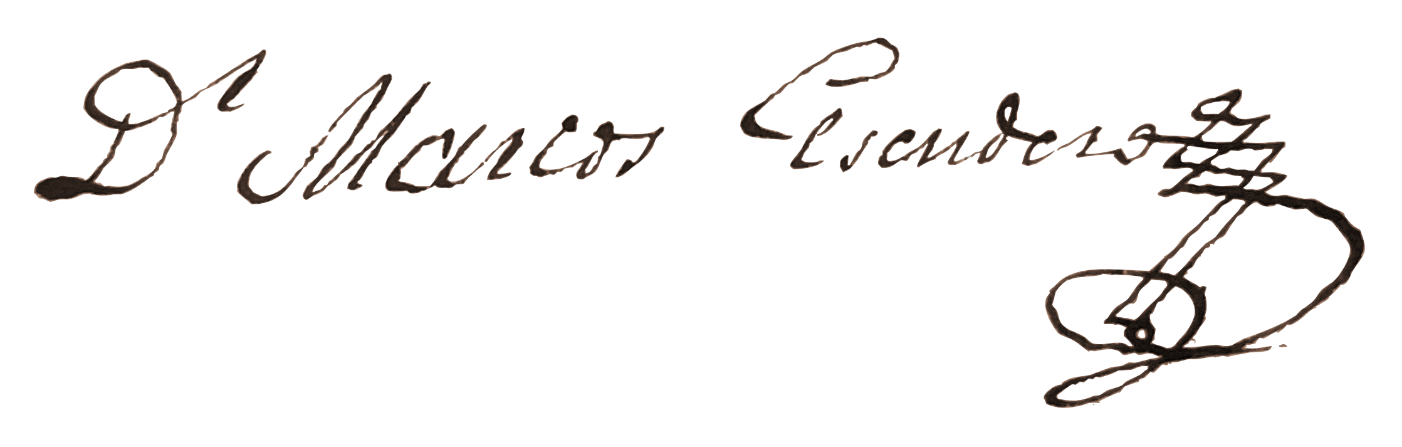 Dr Marcos Escudero